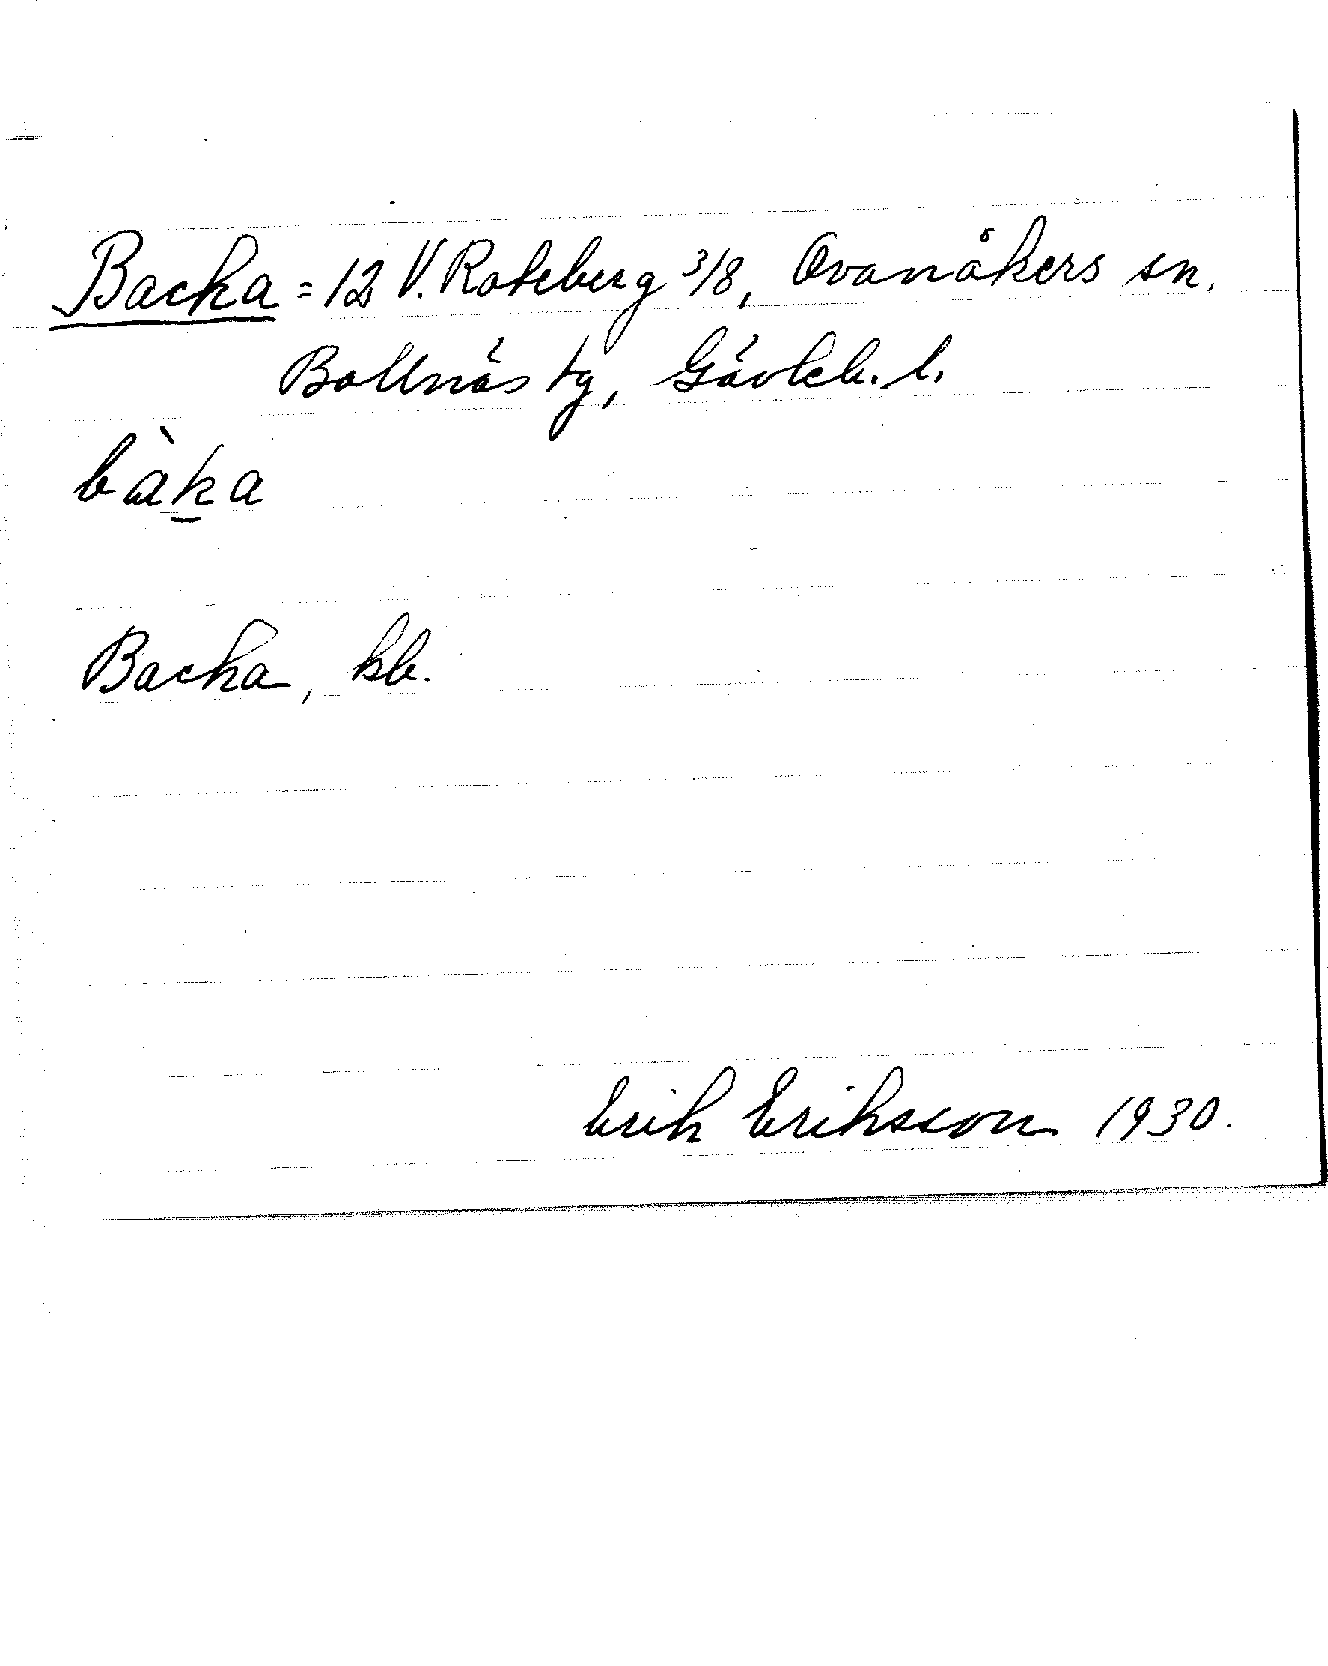 Backa = 12 V. Roteberg 3/8, Ovanåkers sn.
Bollnäs tg, Gävleb. l.
bàka
Backa, kb.
Erik Eriksson 1930.